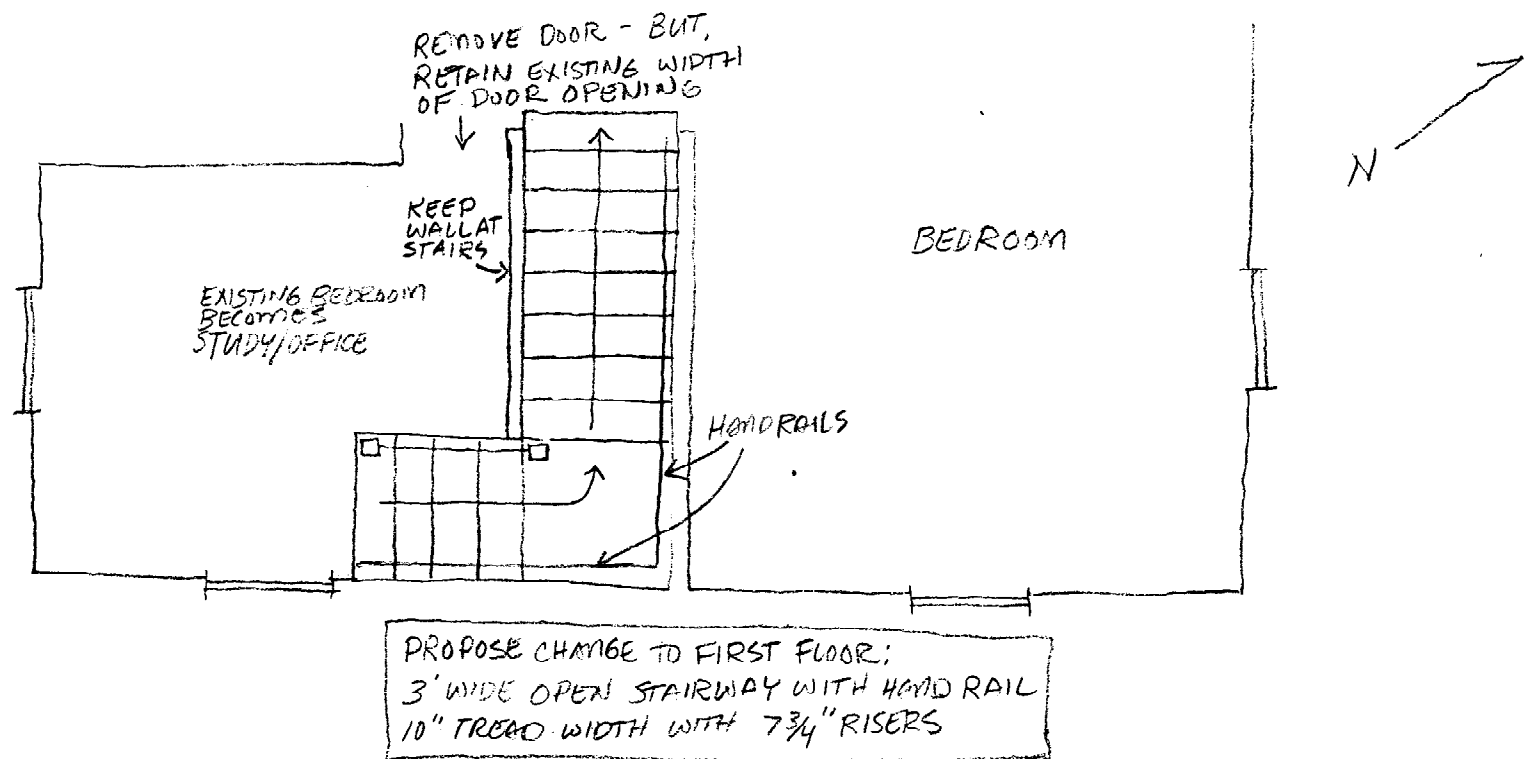 REMOVE DOOR - BUT,
RETAIN EXISTING WIDTH
OF DOOR OPENING
KEEP
WALL AT
STAIRS
EXISTING BEDROOM
BECOMES
STUDY/OFFICE
BEDROOM
N
HANDRAILS
PROPOSE CHANGE TO FIRST FLOOR:
3' WIDE OPEN STAIRWAY WITH HAND RAIL
10" TREAD WIDTH WITH 7 3/4" RISERS